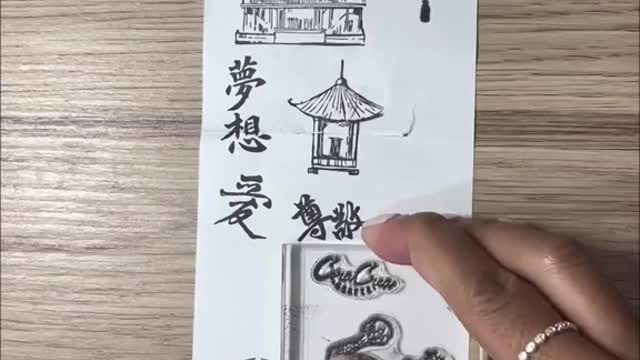 夢想
愛
尊敬